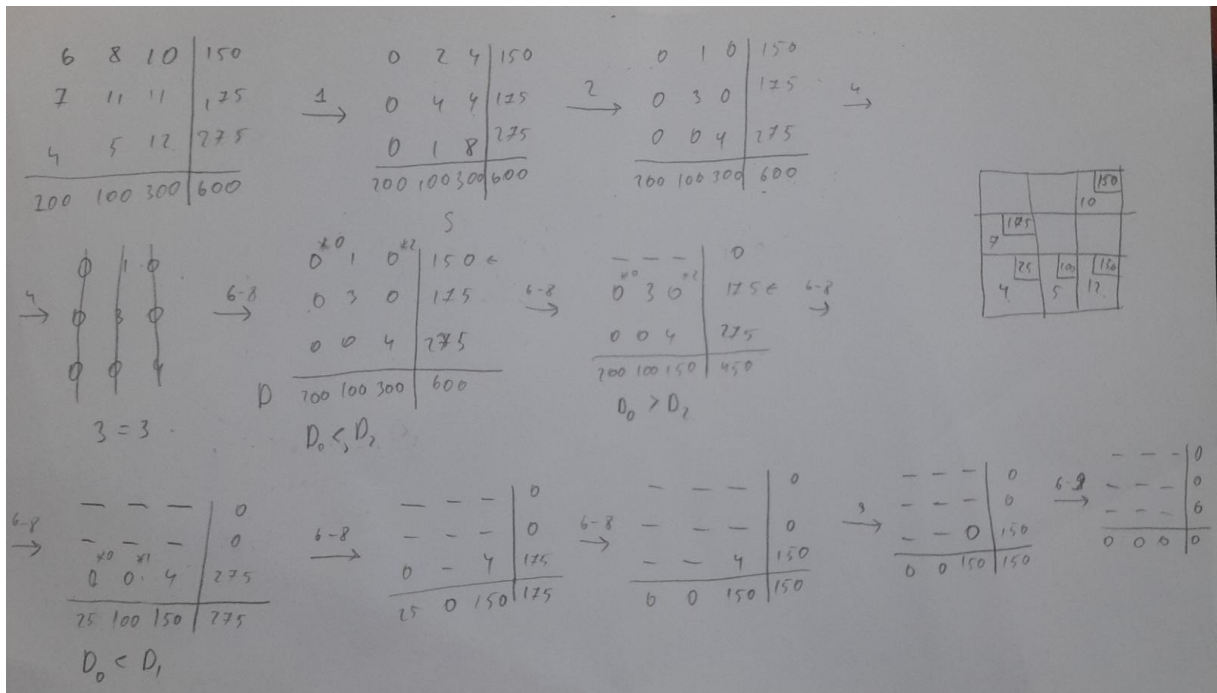 6 8 10 150
7 11 11 175
4 5 12 275
200 100 300 600
1
0 2 4 150
0 4 4 175
0 1 8 275
200 100 300 600
2
0 1 0 150
0 3 0 175
0 0 4 275
200 100 300 600
4
150
10
175
7
25 100 150
4 5 12
4
0 1 0
0 3 0
0 0 4
3 = 3
6-8
S
*0 *2
0 1 0 150 ←
0 3 0 175
0 0 4 275
D 200 100 300 600
D0 < D2
6-8
— — — 0
*0 *2
0 3 0 175 ←
0 0 4 275
200 100 150 450
D0 > D2
6-8
6-8
— — — 0
— — — 0
*0 *1
0 0 4 275
25 100 150 275
D0 < D1
6-8
— — — 0
— — — 0
0 — 4 175
25 0 150 175
6-8
— — — 0
— — — 0
— — 4 150
0 0 150 150
— — — 0
— — — 0
— — 0 150
0 0 150 150
— — — 0
— — — 0
— — — 0
0 0 0 0